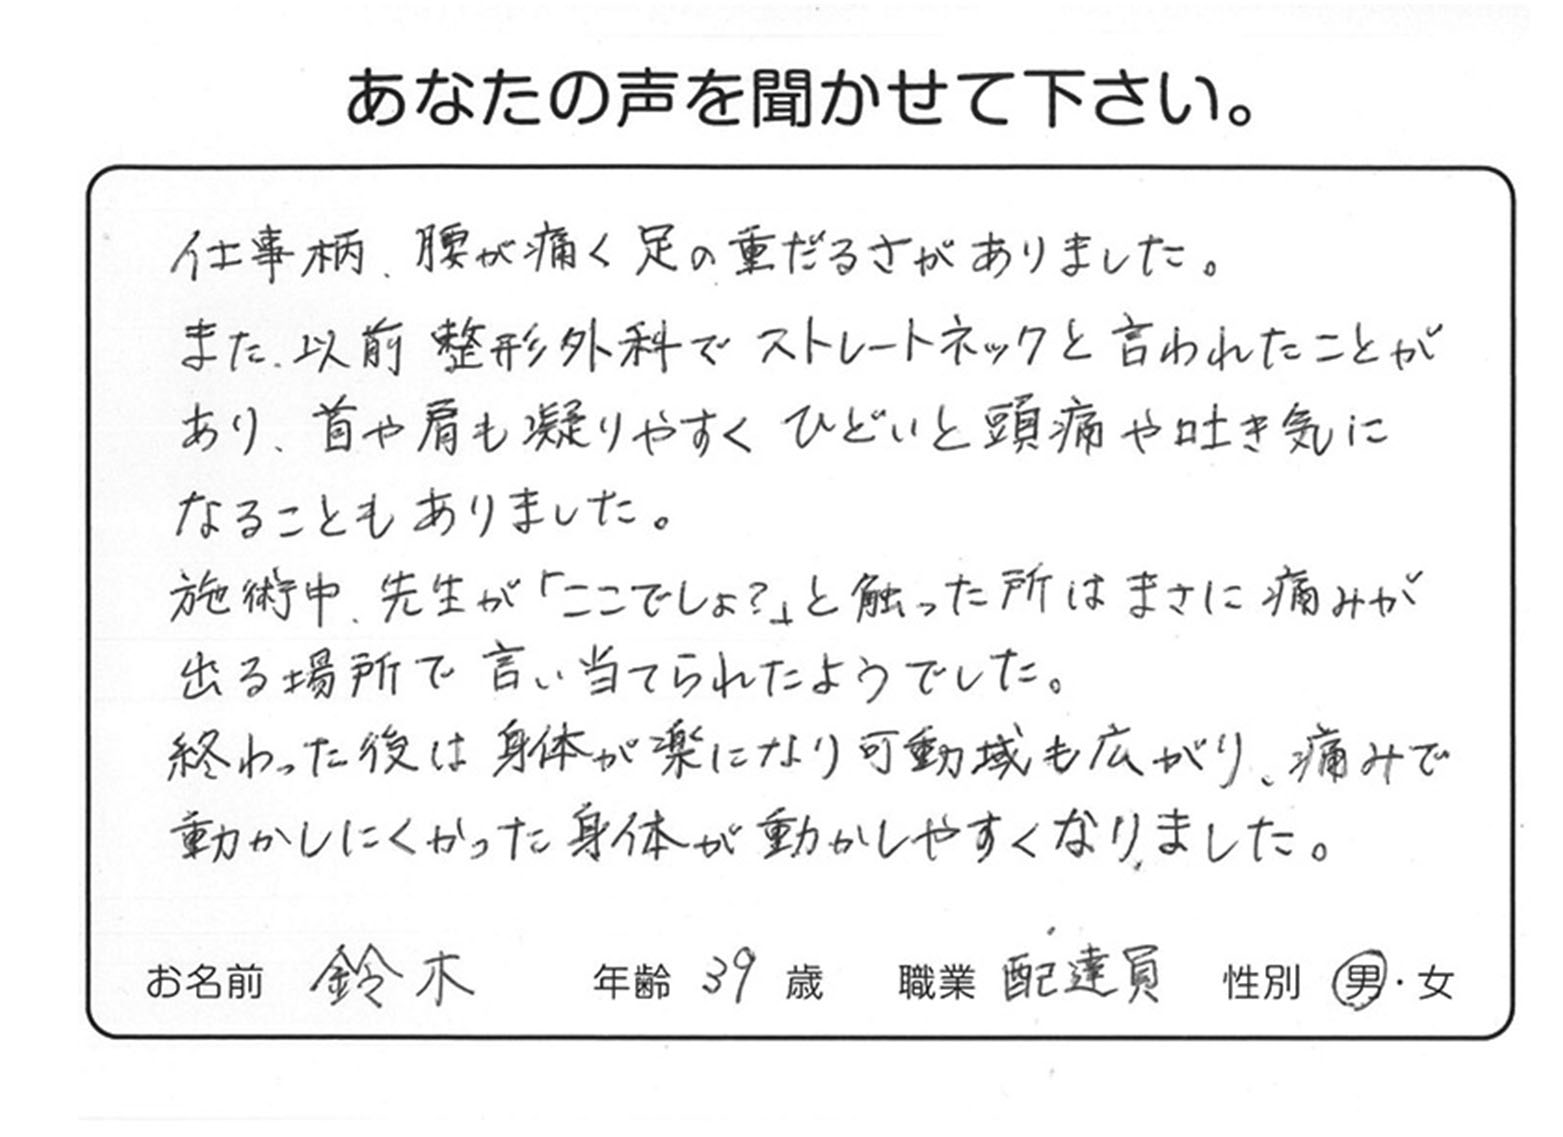 あなたの声を聞かせて下さい。
仕事柄、腰が痛く足の重だるさがありました。
また、以前整形外科でストレートネックと言われたことが
あり、首や肩も凝りやすくひどいと頭痛や吐き気に
なることもありました。
施術中、先生が「ここでしょ?」と触った所はまさに痛みが
出る場所で言い当てられたようでした。
終わった後は身体が楽になり可動域も広がり、痛みで
動かしにくかった身体が動かしやすくなりました。
お名前 鈴木 年齢 39 歳 職業 配達員 性別 男・女